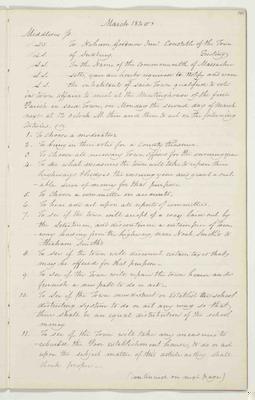 March 1840
Middlesex Ss.
S.S. To Nahum Gardner Junr. Constable of the Town
S.S. of Greeting.
S.S. In the Name of the Commonwealth of Massachu-
S.S. setts, you are hereby required to Notify and warn
S.S. the inhabitants of said Town qualified to vote
in town affairs to meet at the Meetinghouse of the first
Parish in said Town, on Monday the second day of March
next at o'clock A.M. then and there to act on the following
Articles, viz
1. To choose a moderator
2. To bring in their votes for a County treasurer
3. To choose all necessary Town officers for the ensuing year
4. To see what measures the town will take to repair their
highways & bridges the ensuing year and grant a suit-
able sum of money for that purpose
5. To choose a committee on accounts,
6. To hear and act upon all reports of committees.
7. To see if the town will accept of a road laid out by
the Selectmen, and discontinue a certain piece of Town
way leading from the highway, near Noah Smith's to
Abraham Smith's
8. To see if the town will discount certain taxes that
may be offered for that purpose.
9. To see if the town will repair the town house and
furnish a sum paid to do in act.
10. To see if the Town will or establish the school
districting system to do or act any way so that
there shall be an equal distribution of the school
money
11. To see if the Town will take any measures to
the Poor establishment house, & to do or act
upon the subject matter of this article as they shall
think proper
(continued on next page)